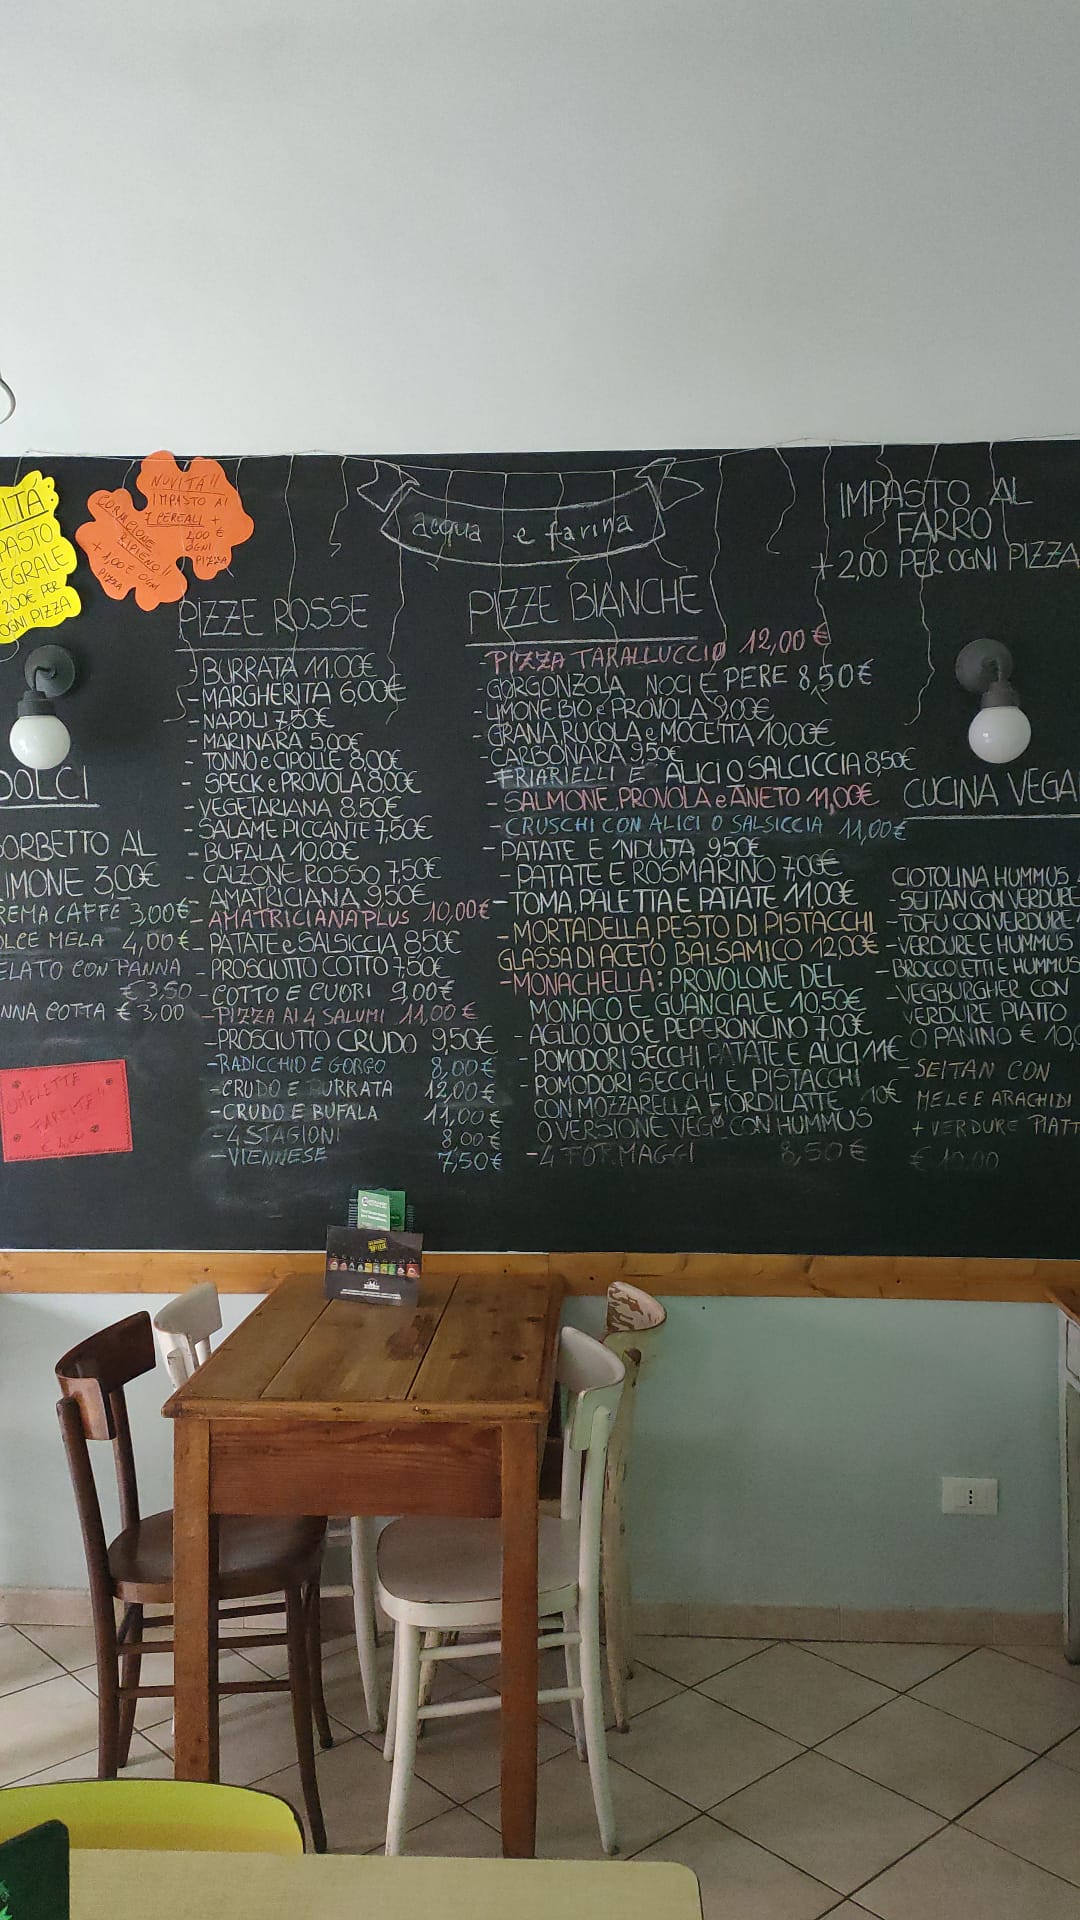 acqua e farina
IMPASTO AL
FARRO
+ 2,00 PER OGNI PIZZA
ITA
PASTO
EGRALE
2,00€ PER
OGNI PIZZA
NOVITÀ!!
IMPASTO AI
7 CEREALI +
2,00 €
OGNI
PIZZA
CORNICIONE
RIPIENO!!
+ 1,00 € OGNI
PIZZA
PIZZE ROSSE
- BURRATA 11,00€
- MARGHERITA 6,00€
- NAPOLI 7,50€
- MARINARA 5,00€
- TONNO e CIPOLLE 8,00€
- SPECK e PROVOLA 8,00€
- VEGETARIANA 8,50€
- SALAME PICCANTE 7,50€
- BUFALA 10,00€
- CALZONE ROSSO 7,50€
- AMATRICIANA 9,50€
- AMATRICIANA PLUS 10,00€
- PATATE e SALSICCIA 8,50€
- PROSCIUTTO COTTO 7,50€
- COTTO E CUORI 9,00€
- PIZZA AI 4 SALUMI 11,00€
- PROSCIUTTO CRUDO 9,50€
- RADICCHIO E GORGO 8,00€
- CRUDO E BURRATA 12,00€
- CRUDO E BUFALA 11,00€
- 4 STAGIONI 8,00€
- VIENNESE 7,50€
PIZZE BIANCHE
- PIZZA TARALLUCCIO 12,00€
- GORGONZOLA NOCI E PERE 8,50€
- LIMONE BIO e PROVOLA 9,00€
- GRANA RUCOLA e MOCETTA 10,00€
- CARBONARA 9,50€
- FRIARIELLI E ALICI O SALCICCIA 8,50€
- SALMONE, PROVOLA e ANETO 11,00€
- CRUSCHI CON ALICI O SALSICCIA 11,00€
- PATATE E 'NDUJA 9,50€
- PATATE E ROSMARINO 7,00€
- TOMA, PALETTA E PATATE 11,00€
- MORTADELLA PESTO DI PISTACCHI
GLASSA DI ACETO BALSAMICO 12,00€
- MONACHELLA: PROVOLONE DEL
MONACO E GUANCIALE 10,50€
- AGLIO, OLIO E PEPERONCINO 7,00€
- POMODORI SECCHI, PATATE E ALICI 11€
- POMODORI SECCHI E PISTACCHI
CON MOZZARELLA FIORDILATTE 10€
O VERSIONE VEG CON HUMMUS
- 4 FORMAGGI 8,50€
DOLCI
SORBETTO AL
LIMONE 3,00€
REMA CAFFÈ 3,00€
OLCE MELA 4,00€
ELATO CON PANNA
€ 3,50
NNA COTTA € 3,00
OMELETTE
FARCITE!!
€ 4,00
CUCINA VEGA
CIOTOLINA HUMMUS
- SEITAN CON VERDURE
- TOFU CON VERDURE
- VERDURE E HUMMUS
- BROCCOLETTI E HUMMUS
- VEGBURGHER CON
VERDURE PIATTO
O PANINO € 10,0
- SEITAN CON
MELE E ARACHIDI
+ VERDURE PIATT
€ 10,00